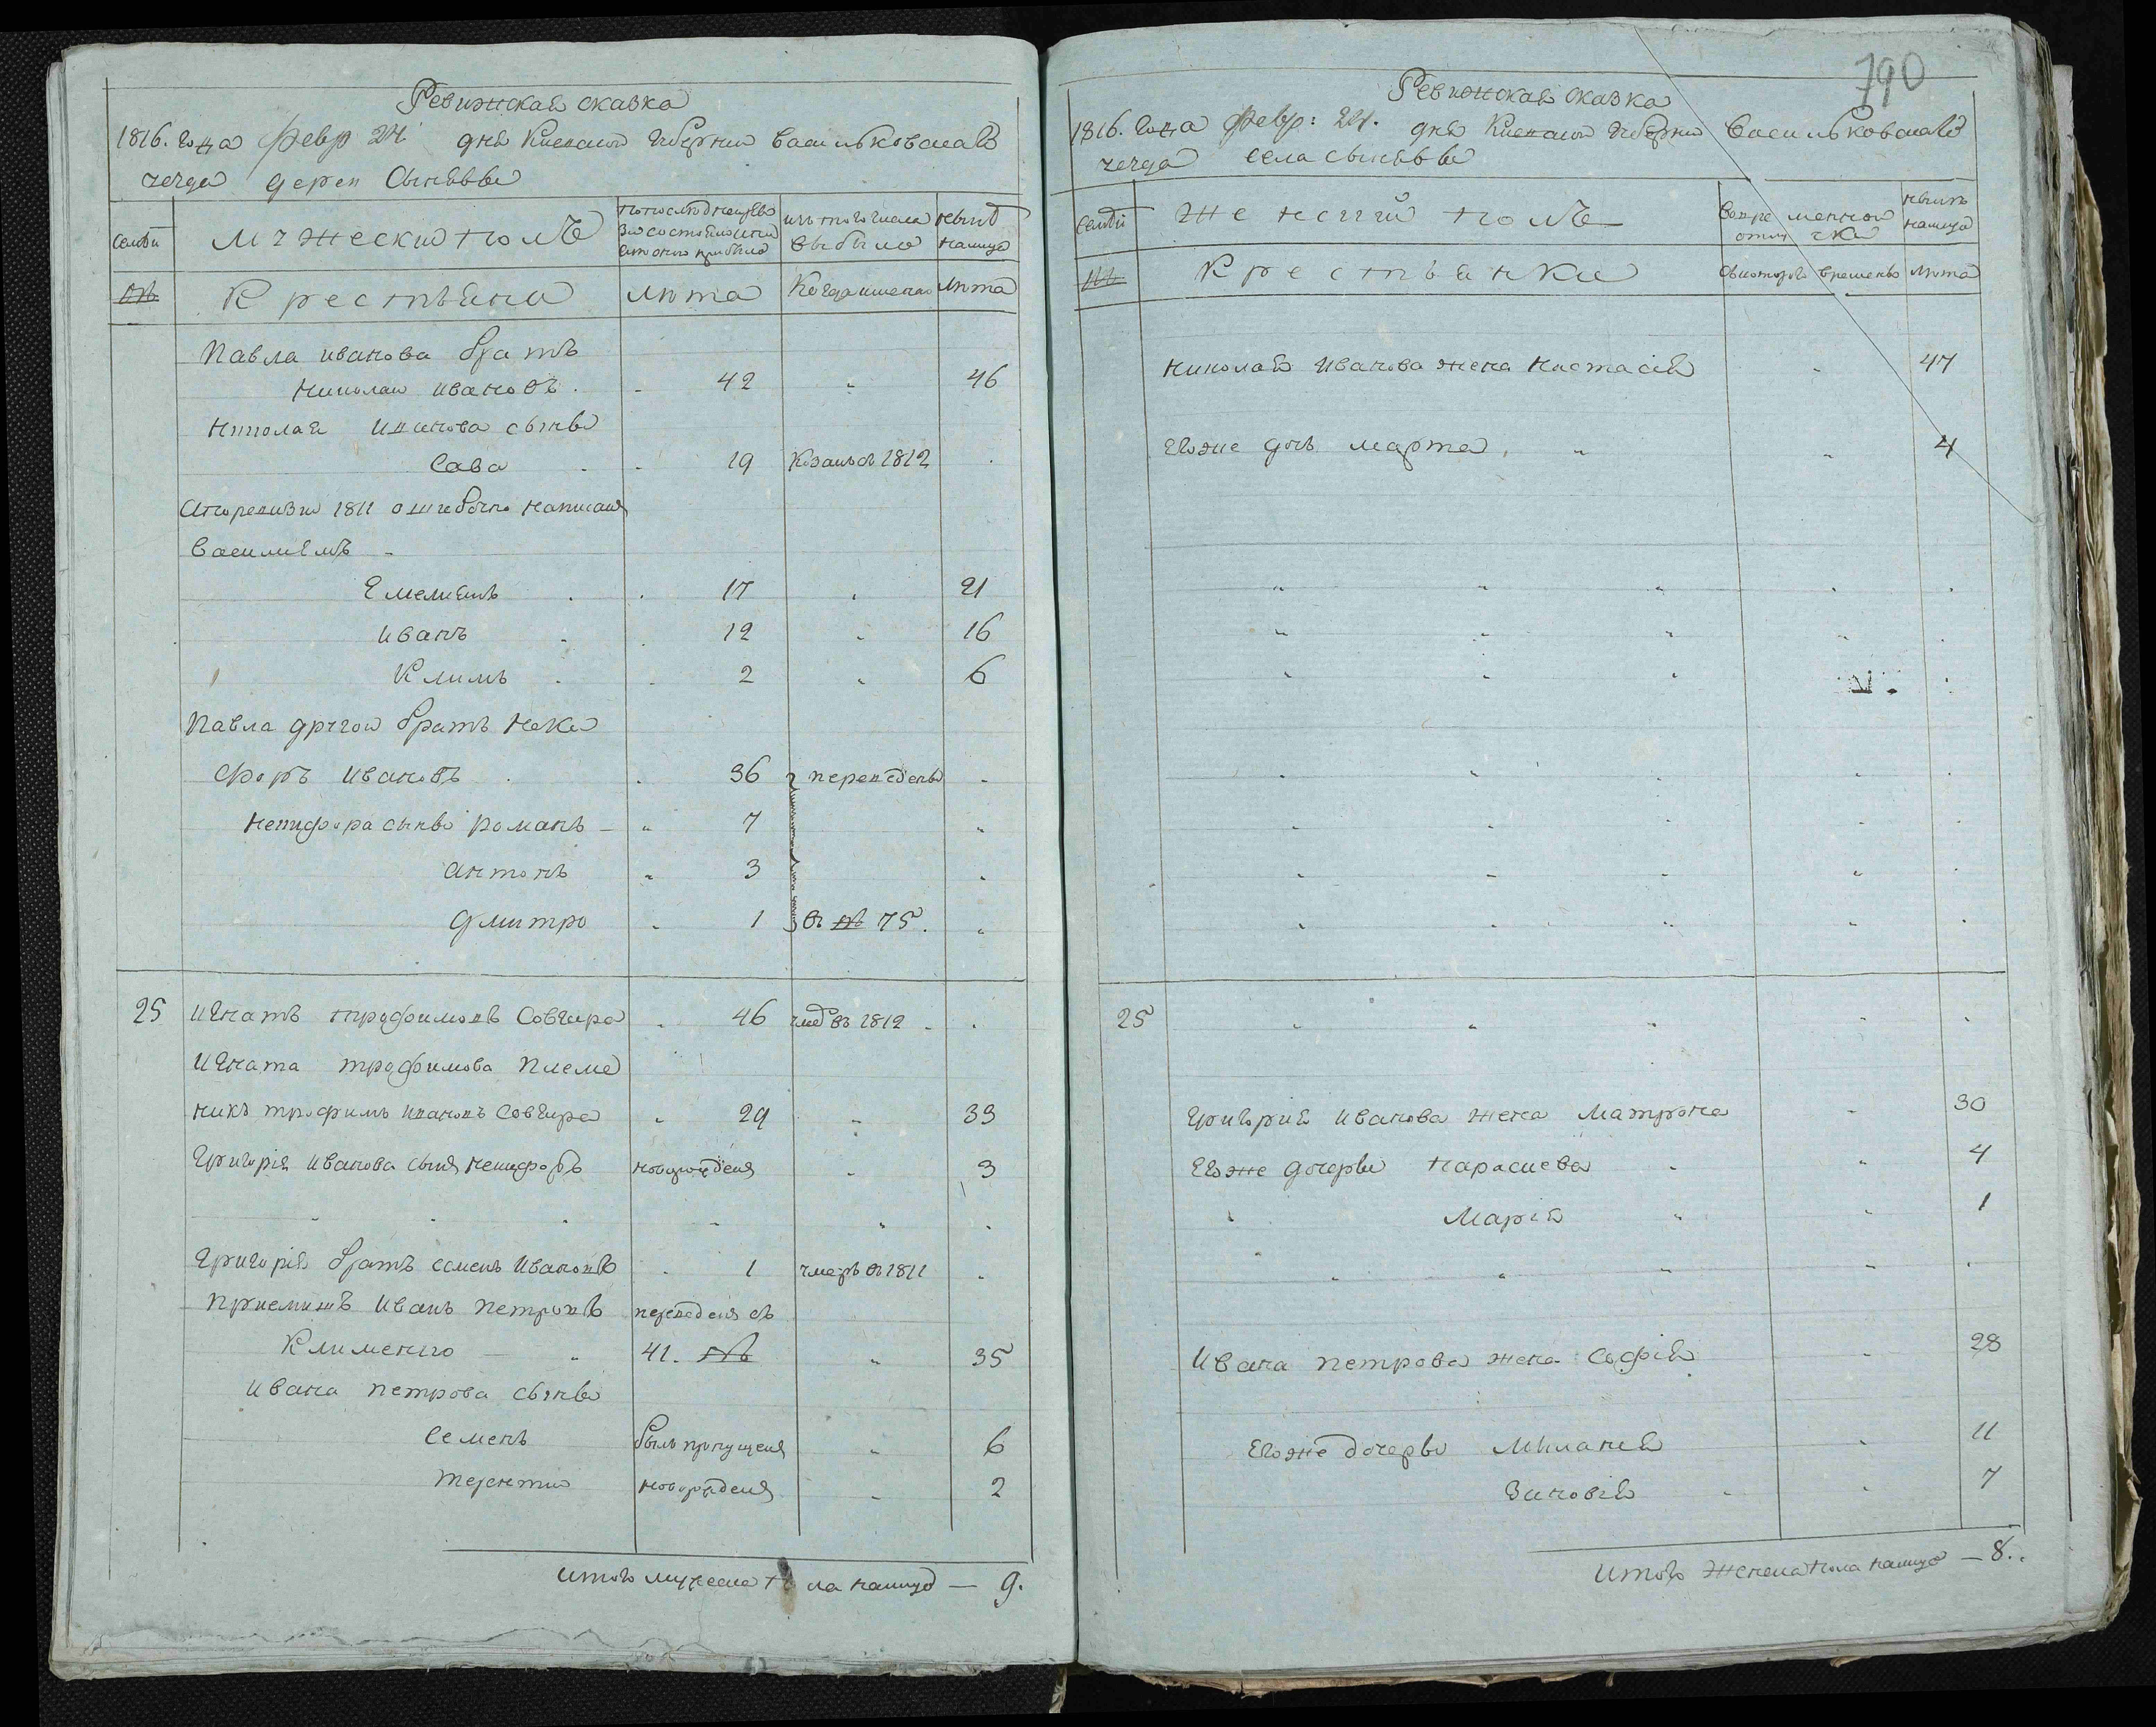 Ревизская сказка
1816. года февр 24 дня Киевской губернии васильковскаго
уезда дерев Сынявы
семьи
Мужеский полъ
по последней ревизии состояло и после оной прибыло
изъ того числа выбыло
ныне налицо
№
Крестьяне
лѣта
Когда именно
лѣта
Павла иванова братъ
Николай ивановъ . - 42 " 46
Николая иванова сыны
Сава - - 19 Козакъ въ 1812 .
а по ревизии 1811 ошибочно написанъ
Василиемъ -
Емелианъ . . 17 " 21
иванъ . . 12 " 16
Климъ . . 2 " 6
Павла другой братъ Ники
форъ ивановъ . . 36 переведены -
Никифора сыны романъ - " 7 "
антонъ " 3 "
дмитро " 1 въ № 75. "
25 Игнатъ трофимовъ Совгира " 46 умер въ 1812 - .
Игната трофимова племе
никъ трофимъ ивановъ Совгира " 29 " 33
Григорія иванова сынъ никифоръ новорожденъ " 3
Григорія братъ семенъ ивановъ . 1 умеръ въ 1811 "
Приемышъ иванъ петровъ переведенъ съ
Клименко - " 41. № " 35
ивана петрова сыны
Семенъ былъ пропущенъ " 6
терентий новорожденъ " 2
итого мужеска пола налицо — 9.
790
Ревизская сказка
1816. года февр: 24. дня Киевской губернии Васильковскаго
уезда села сынявы
семьи
женский полъ
во временной отлучке
ныне налицо
№
Крестьянки
съ которого времени
лѣта
николая иванова жена Настасія " 47
Его же дочь марта, " " 4
25
Григория иванова жена матрона - 30
Его же дочери Параскева - " 4
Марія " " 1
ивана петрова жена Софія - 28
Его же дочери миланія " 11
Зиновія - " 7
итого женска пола налицо — 8..